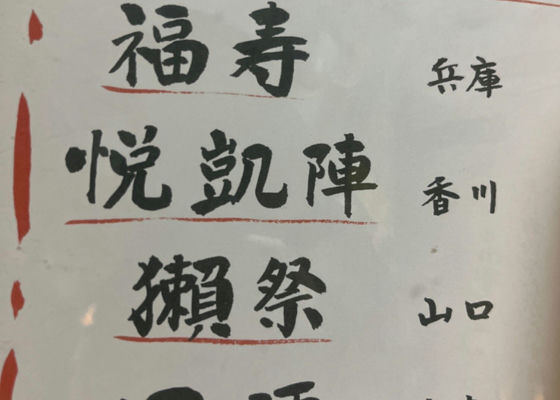 福寿 兵庫
悦凱陣 香川
獺祭 山口